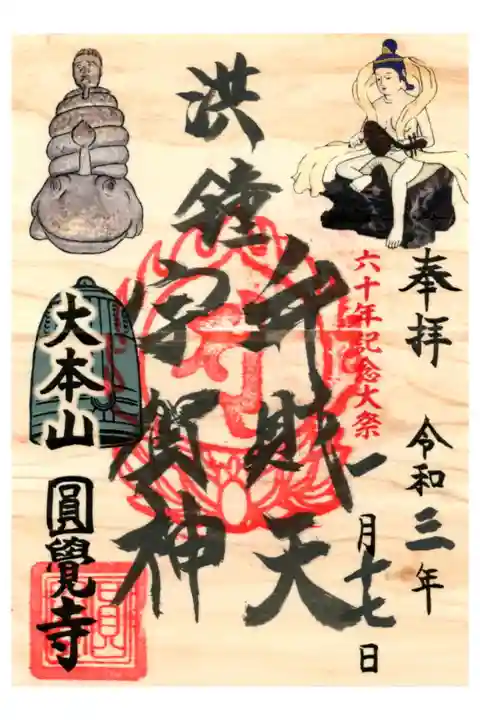 奉拝 令和三年
一月十七日
六十年記念大祭
洪鐘
弁財天
宇賀神
大本山
圓覺寺